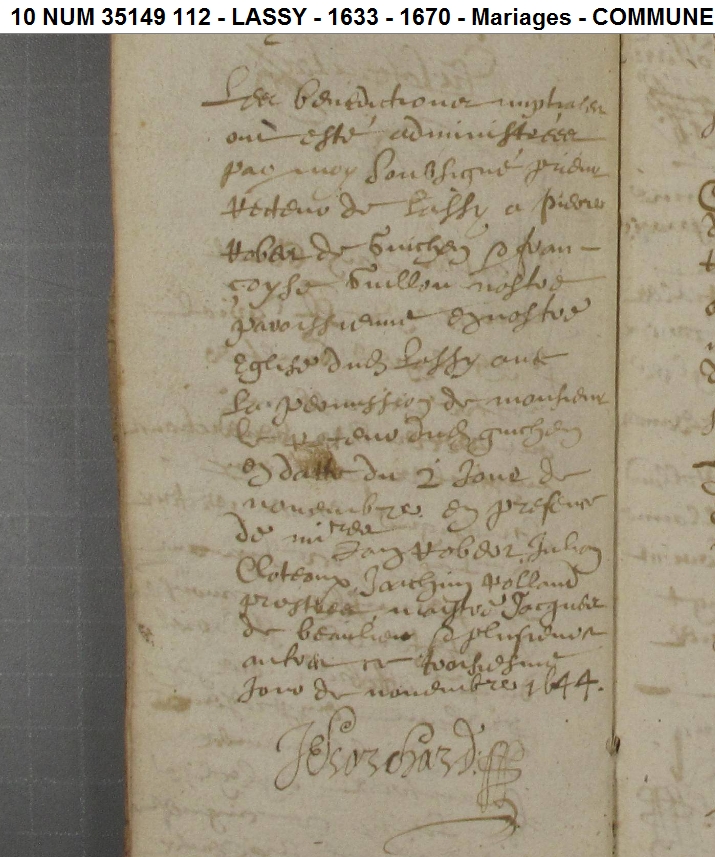 10 NUM 35149 112 - LASSY - 1633 - 1670 - Mariages - COMMUNE
Les benedictions nuptialles
ont esté administrées
par moy soubsigné prieur
Recteur de Lassy a pierre
Rober de Guichen & fran-
coyse Guillou nostre
paroissienne en nostre
Eglise dud Lassy avec
La permission de monsieur
le recteur dud guichen
en datte du 2 Jour de
novembre en presence
de mitres Jan Rober Julien
Cloteaux Joachim Rolland
prestres maistre Jacques
de beaulieu & plusieurs
autres ce troisiesme
Jour de novembre 1644.